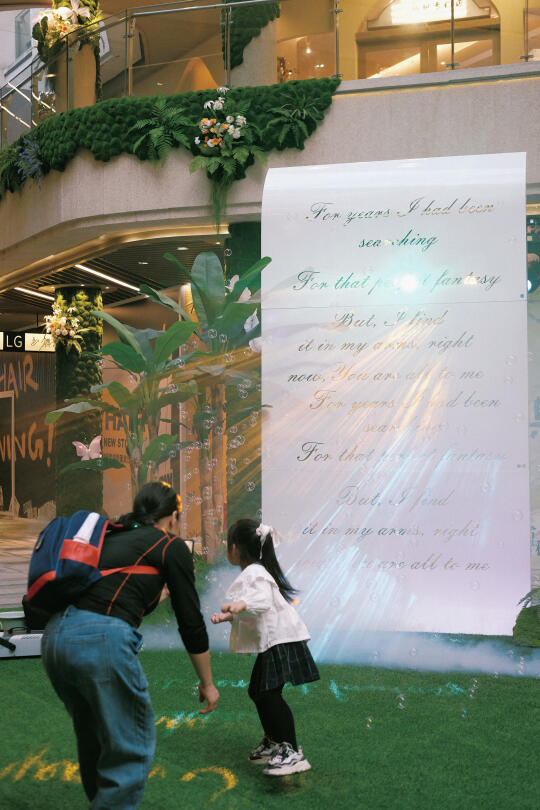 For years I had been
searching
For that perfect fantasy
But, I find
it in my arms, right
now, You are all to me
For years I had been
searching
For that perfect fantasy
But, I find
it in my arms, right
are all to me
LG
HAIR
NEW